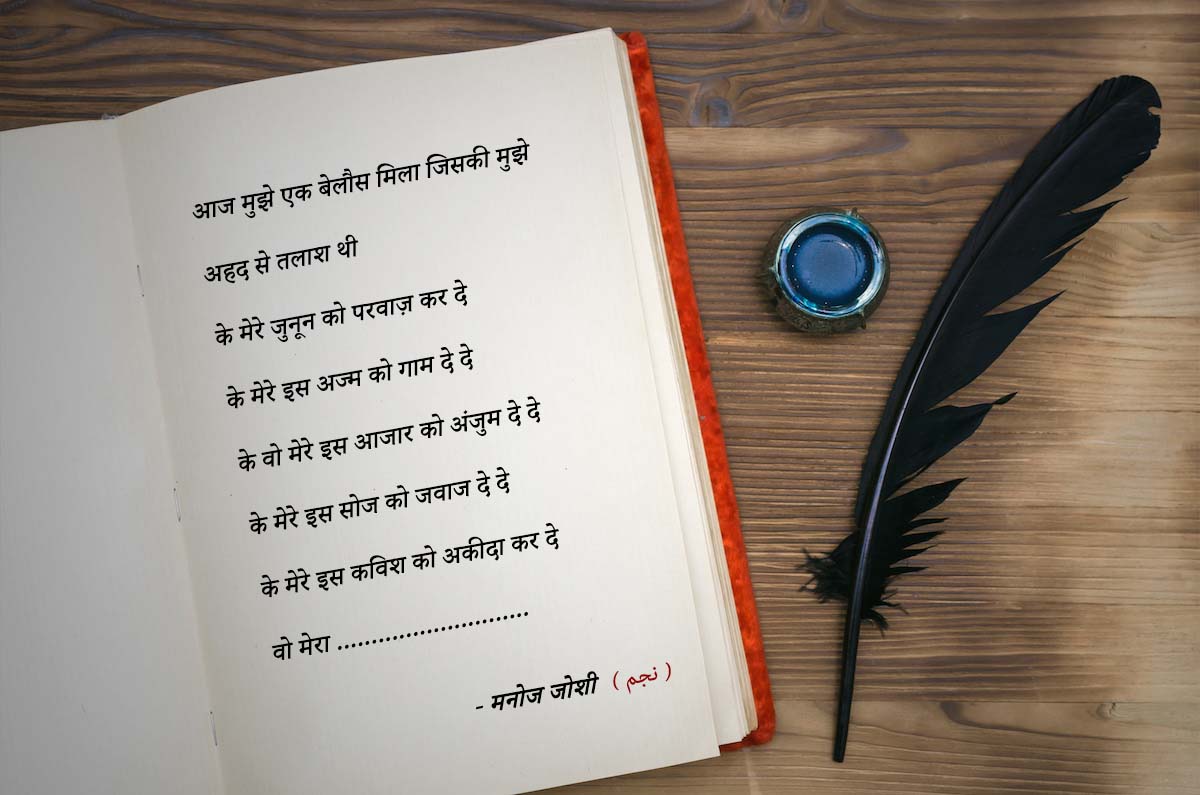 आज मुझे एक बेलौस मिला जिसकी मुझे
अहद से तलाश थी
के मेरे जुनून को परवाज़ कर दे
के मेरे इस अज्म को गाम दे दे
के वो मेरे इस आजार को अंजुम दे दे
के मेरे इस सोज को जवाज दे दे
के मेरे इस कविश को अकीदा कर दे
वो मेरा ............................
- मनोज जोशी ( نجم )